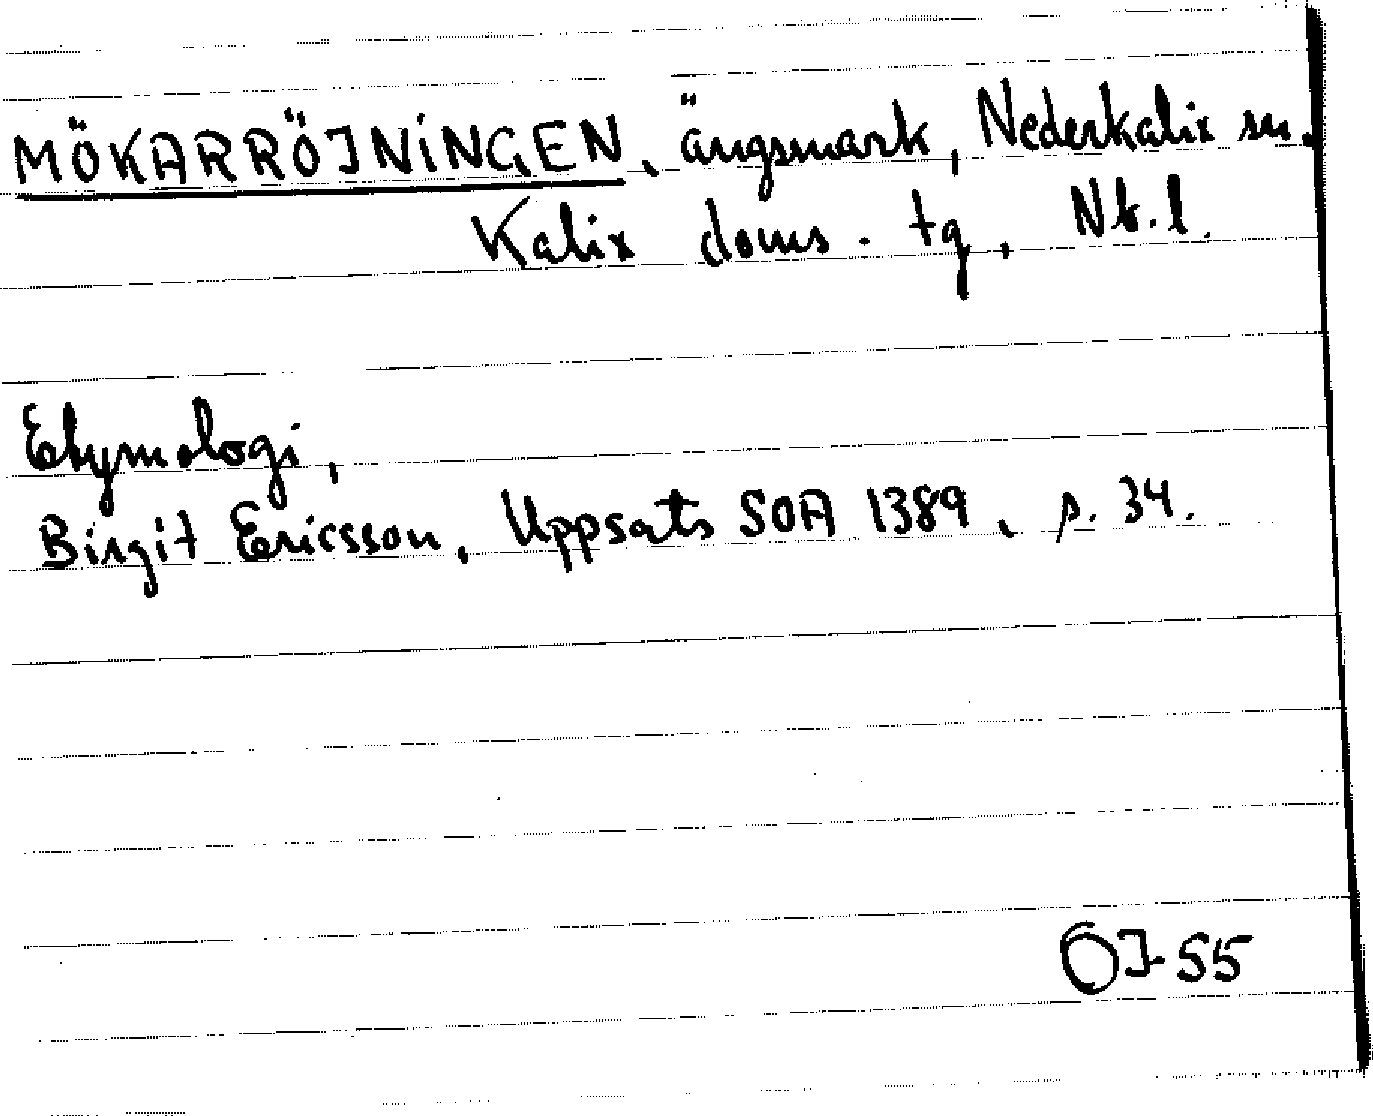 MÖKARRÖJNINGEN, ängsmark, Nederkalix sn.
Kalix doms. tg, Nb.l.
Etymologi,
Birgit Ericsson, Uppsats SOA 1389, s. 34.
OJ-55